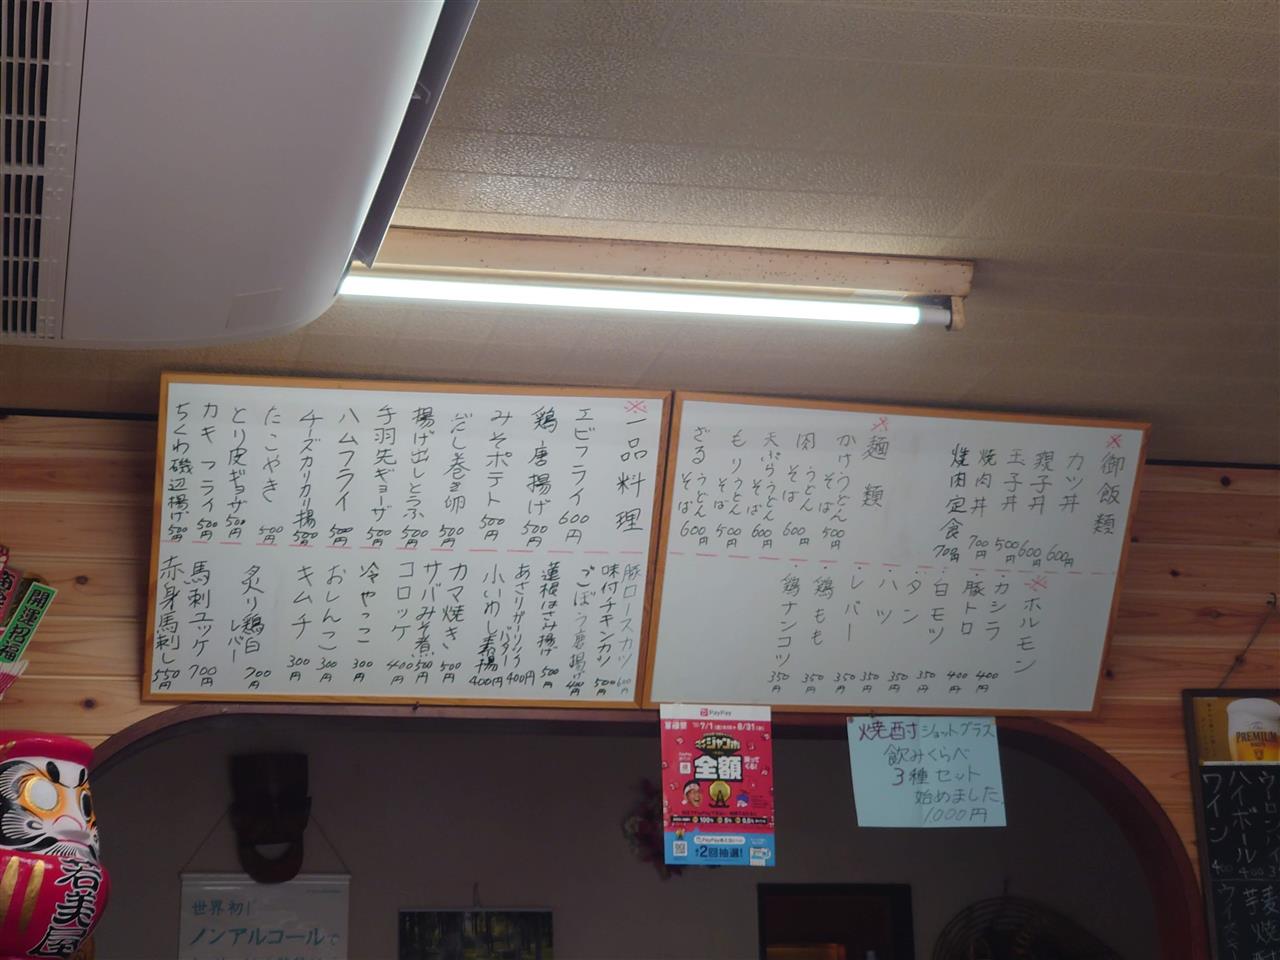 ※一品料理
エビフライ 600円
鶏唐揚げ 500円
みそポテト 500円
だし巻き卵 500円
揚げ出しとうふ 500円
手羽先ギョーザ 500円
ハムフライ 500円
チーズカリカリ揚 500円
たこやき 500円
とり皮ギョーザ 500円
カキフライ 500円
ちくわ磯辺揚げ 500円
豚ロースカツ 600円
味付チキンカツ 500円
ごぼう唐揚げ 400円
蓮根はさみ揚げ 500円
あさりガーリックバター 400円
小いわし素揚 400円
カマ焼き 500円
サバみそ煮 500円
コロッケ 400円
冷やっこ 300円
おしんこ 300円
キムチ 300円
炙り鶏白レバー 700円
馬刺ユッケ 700円
赤身馬刺し 550円
※御飯類
カツ丼 600円
親子丼 600円
玉子丼 500円
焼肉丼 700円
焼肉定食 700円
※麺類
かけうどん そば 500円
肉うどん そば 600円
天ぷらうどん そば 600円
もりうどん そば 500円
ざるうどん そば 600円
※ホルモン
・カシラ 400円
・豚トロ 400円
・白モツ 350円
・タン 350円
・ハツ 350円
・レバー 350円
・鶏もも 350円
・鶏ナンコツ 350円
PayPay
7/1
8/31
ジャンボ
全額
2回抽選!
焼酎ショットグラス
飲みくらべ
3種セット
始めました
1,000円
開運招福
若美屋
世界初!
ノンアルコールで
PREMIUM
ハイボール 400
ワイン 400